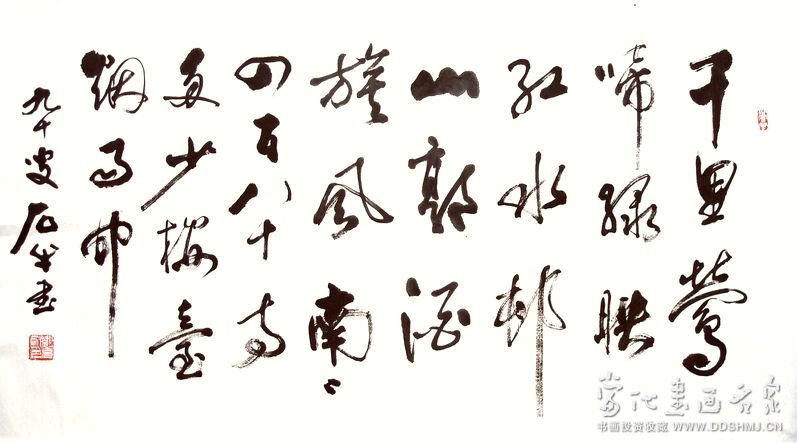 千里鶯
啼緑映
红水邨
山郭酒
旗风南〻
四百八十寺
多少楼臺
烟雨中
九十叟石书
当代书画名家
书画投资收藏 WWW.DDSHMJ.CN